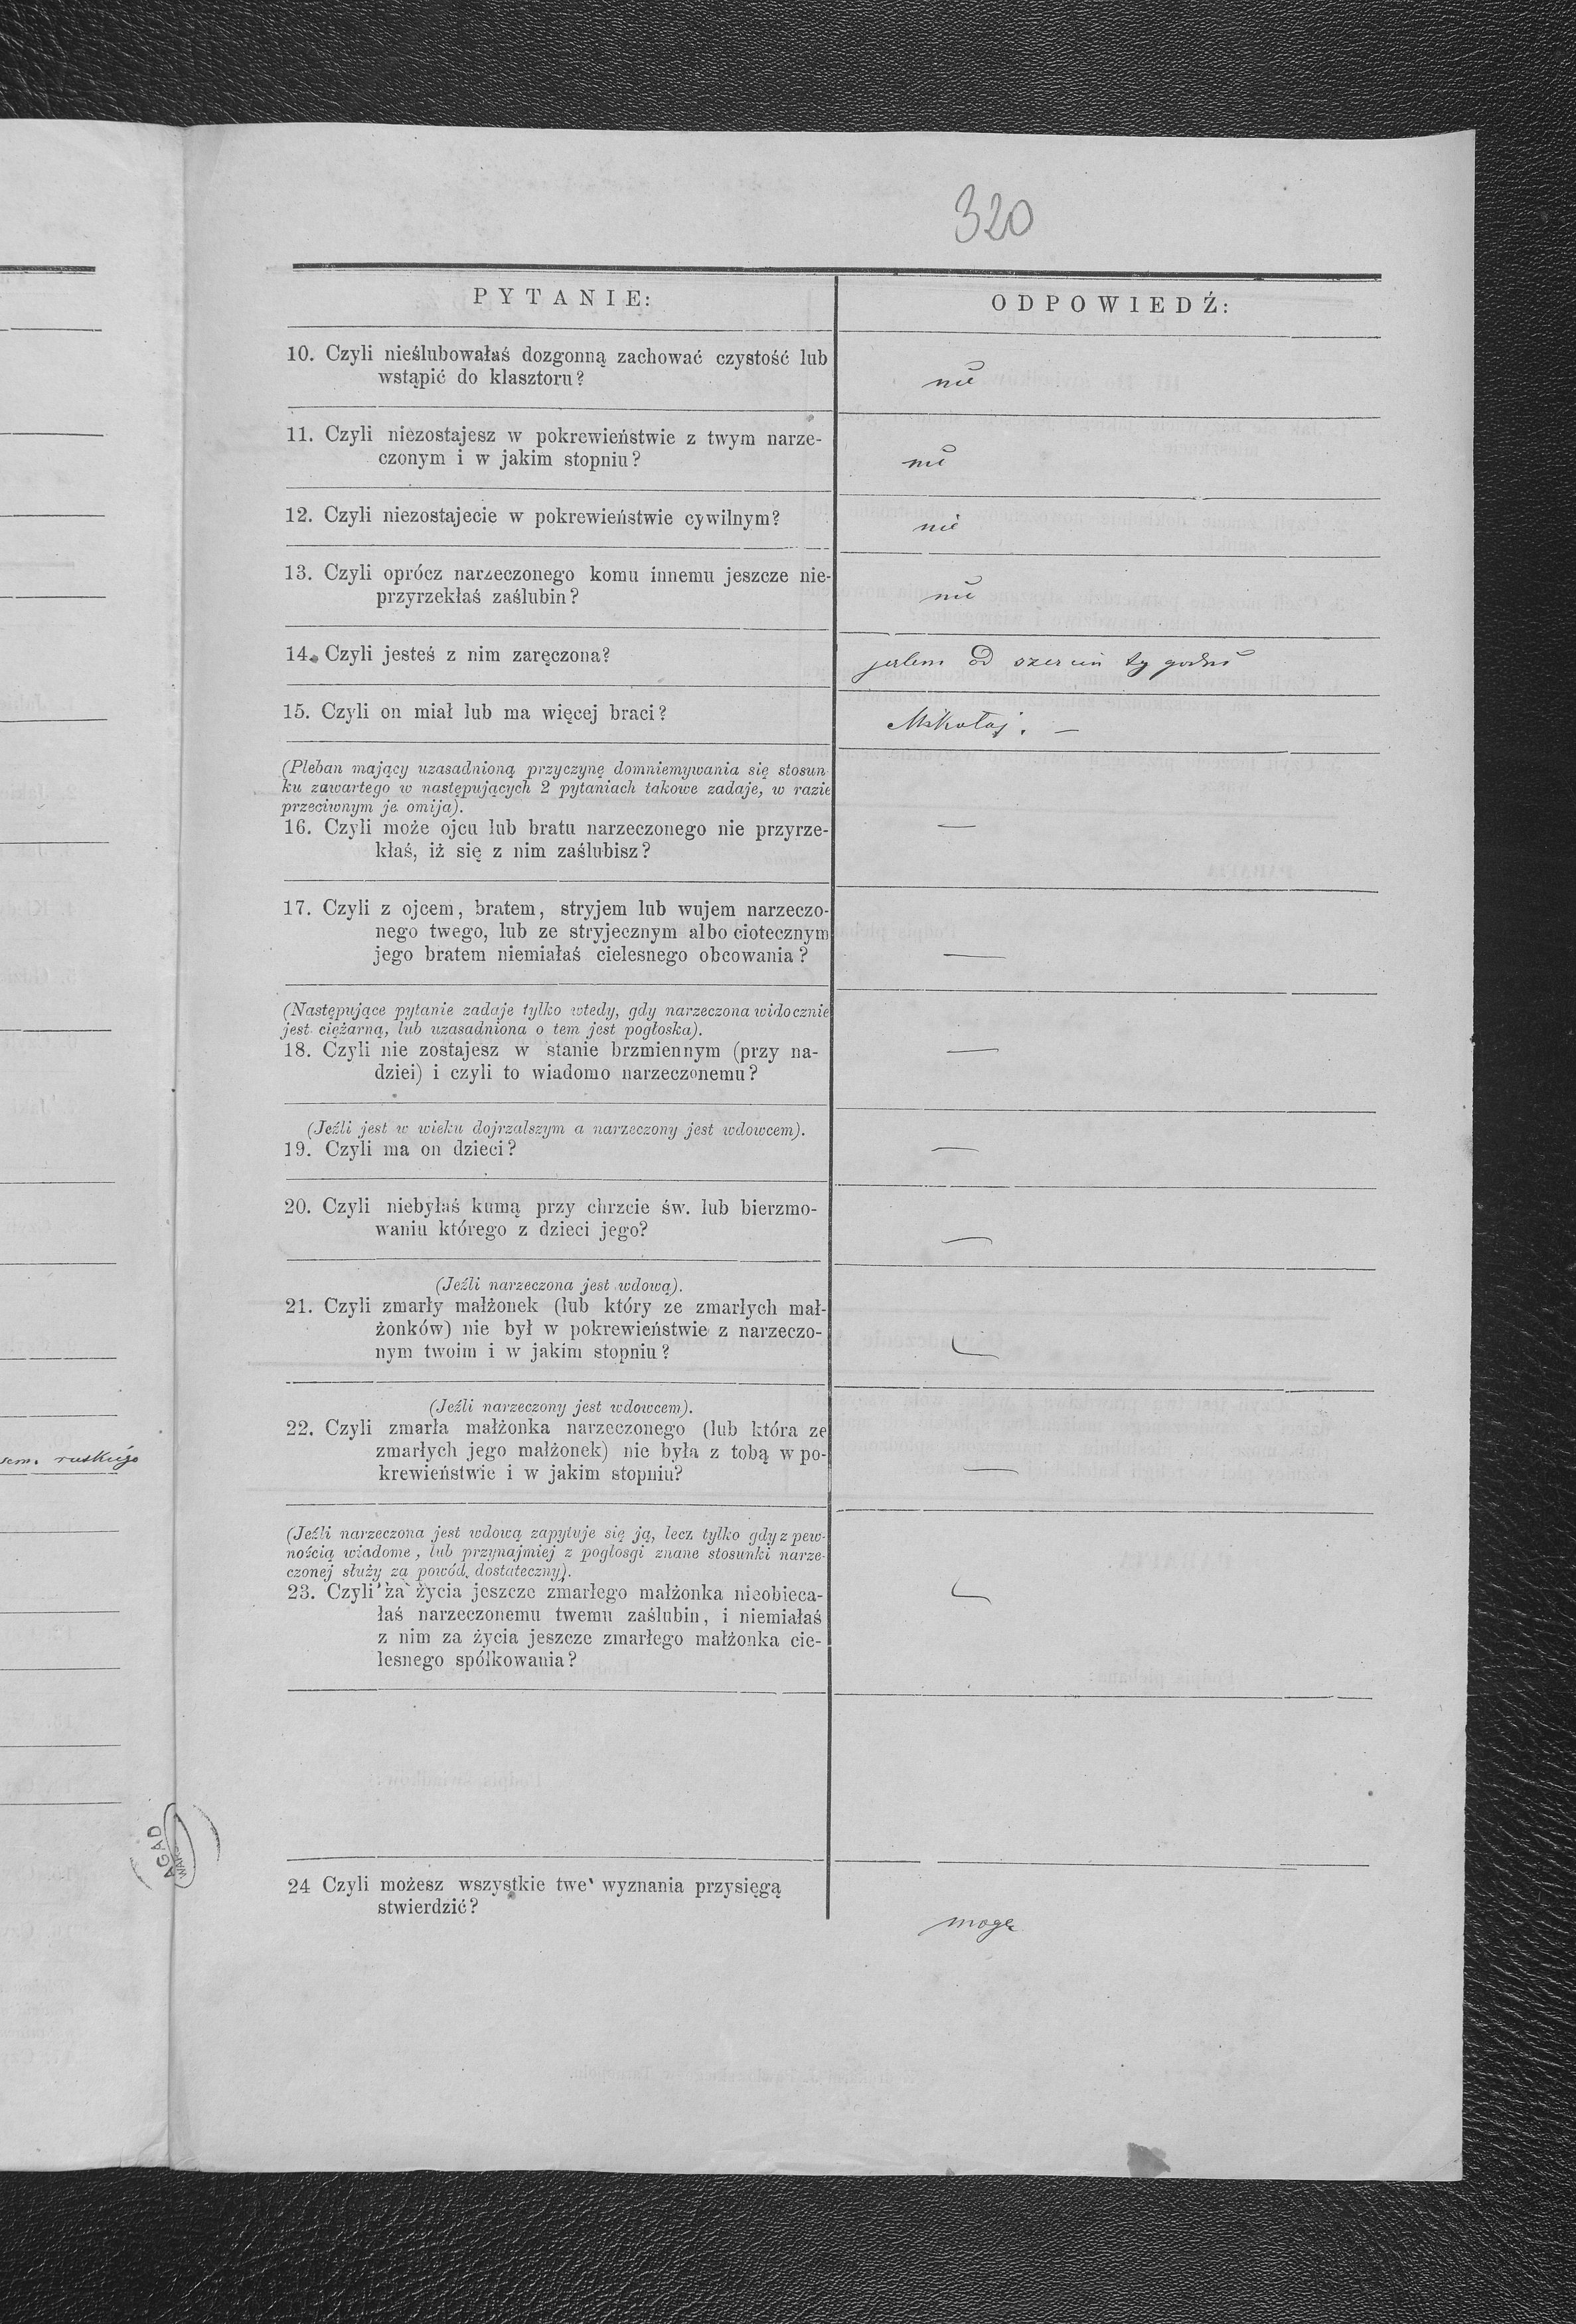 320
PYTANIE:
ODPOWIEDŹ:
10. Czyli nieślubowałaś dozgonną zachować czystość lub
wstąpić do klasztoru?
nie
11. Czyli niezostajesz w pokrewieństwie z twym narze-
czonym i w jakim stopniu?
nie
12. Czyli niezostajecie w pokrewieństwie cywilnym?
nie
13. Czyli oprócz narzeczonego komu innemu jeszcze nie-
przyrzekłaś zaślubin?
nie
14. Czyli jesteś z nim zaręczona?
jestem od tygodni
15. Czyli on miał lub ma więcej braci?
Mikołaj. —
(Pleban mający uzasadnioną przyczynę domniemywania się stosun
ku zawartego w następujących 2 pytaniach takowe zadaje, w razie
przeciwnym je omija).
16. Czyli może ojcu lub bratu narzeczonego nie przyrze-
kłaś, iż się z nim zaślubisz?
—
17. Czyli z ojcem, bratem, stryjem lub wujem narzeczo-
nego twego, lub ze stryjecznym albo ciotecznym
jego bratem niemiałaś cielesnego obcowania?
—
(Następujące pytanie zadaje tylko wtedy, gdy narzeczona widocznie
jest ciężarną, lub uzasadniona o tem jest pogłoska).
18. Czyli nie zostajesz w stanie brzmiennym (przy na-
dziei) i czyli to wiadomo narzeczonemu?
—
(Jeźli jest w wieku dojrzalszym a narzeczony jest wdowcem).
19. Czyli ma on dzieci?
—
20. Czyli niebyłaś kumą przy chrzcie św. lub bierzmo-
waniu którego z dzieci jego?
—
(Jeźli narzeczona jest wdową).
21. Czyli zmarły małżonek (lub który ze zmarłych mał-
żonków) nie był w pokrewieństwie z narzeczo-
nym twoim i w jakim stopniu?
—
(Jeźli narzeczony jest wdowcem).
22. Czyli zmarła małżonka narzeczonego (lub która ze
zmarłych jego małżonek) nie była z tobą w po-
krewieństwie i w jakim stopniu?
—
(Jeźli narzeczona jest wdową zapytuje się ją, lecz tylko gdy z pew-
nością wiadome, lub przynajmiej z poglosgi znane stosunki narze-
czonej służy za powód dostateczny).
23. Czyli za życia jeszcze zmarłego małżonka nieobieca-
łaś narzeczonemu twemu zaślubin, i niemiałaś
z nim za życia jeszcze zmarłego małżonka cie-
lesnego spółkowania?
—
24 Czyli możesz wszystkie twe wyznania przysięgą
stwierdzić?
mogę
ruskiego
AGAD